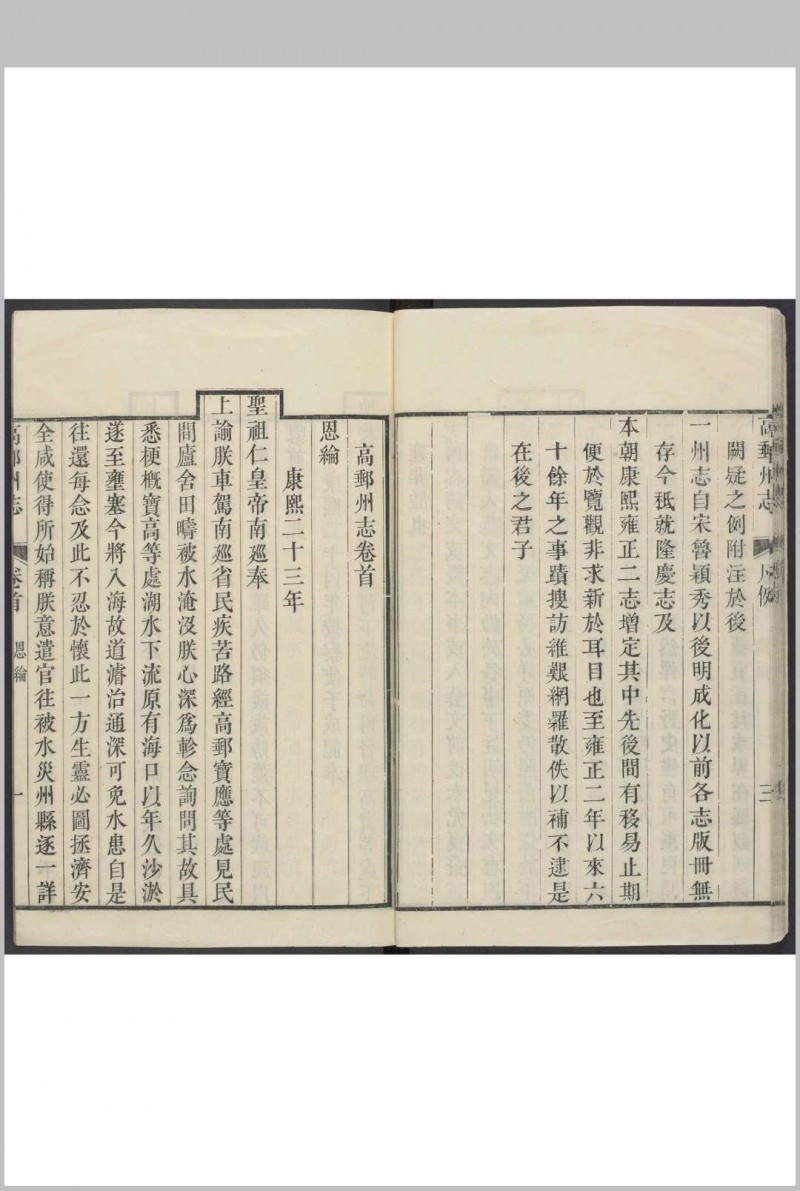 高郵州志 凡例 三
闕疑之例附注於後
一州志自宋魯穎秀以後明成化以前各志版冊無
存今秪就隆慶志及
本朝康熙雍正二志增定其中先後間有移易止期
便於覽觀非求新於耳目也至雍正二年以來六
十餘年之事蹟搜訪維艱網羅散佚以補不逮是
在後之君子
高郵州志卷首
恩綸
康熙二十三年
聖祖仁皇帝南廵奉
上諭朕車駕南廵省民疾苦路經高郵寶應等處見民
間廬舍田疇被水淹沒朕心深爲軫念詢問其故具
悉梗概寶高等處湖水下流原有海口以年久沙淤
遂至壅塞今將入海故道濬治通深可免水患自是
往還每念及此不忍於懷此一方生靈必圖拯濟安
全咸使得所始稱朕意遣官往被水災州縣逐一詳
高郵州志 卷首 恩綸 一